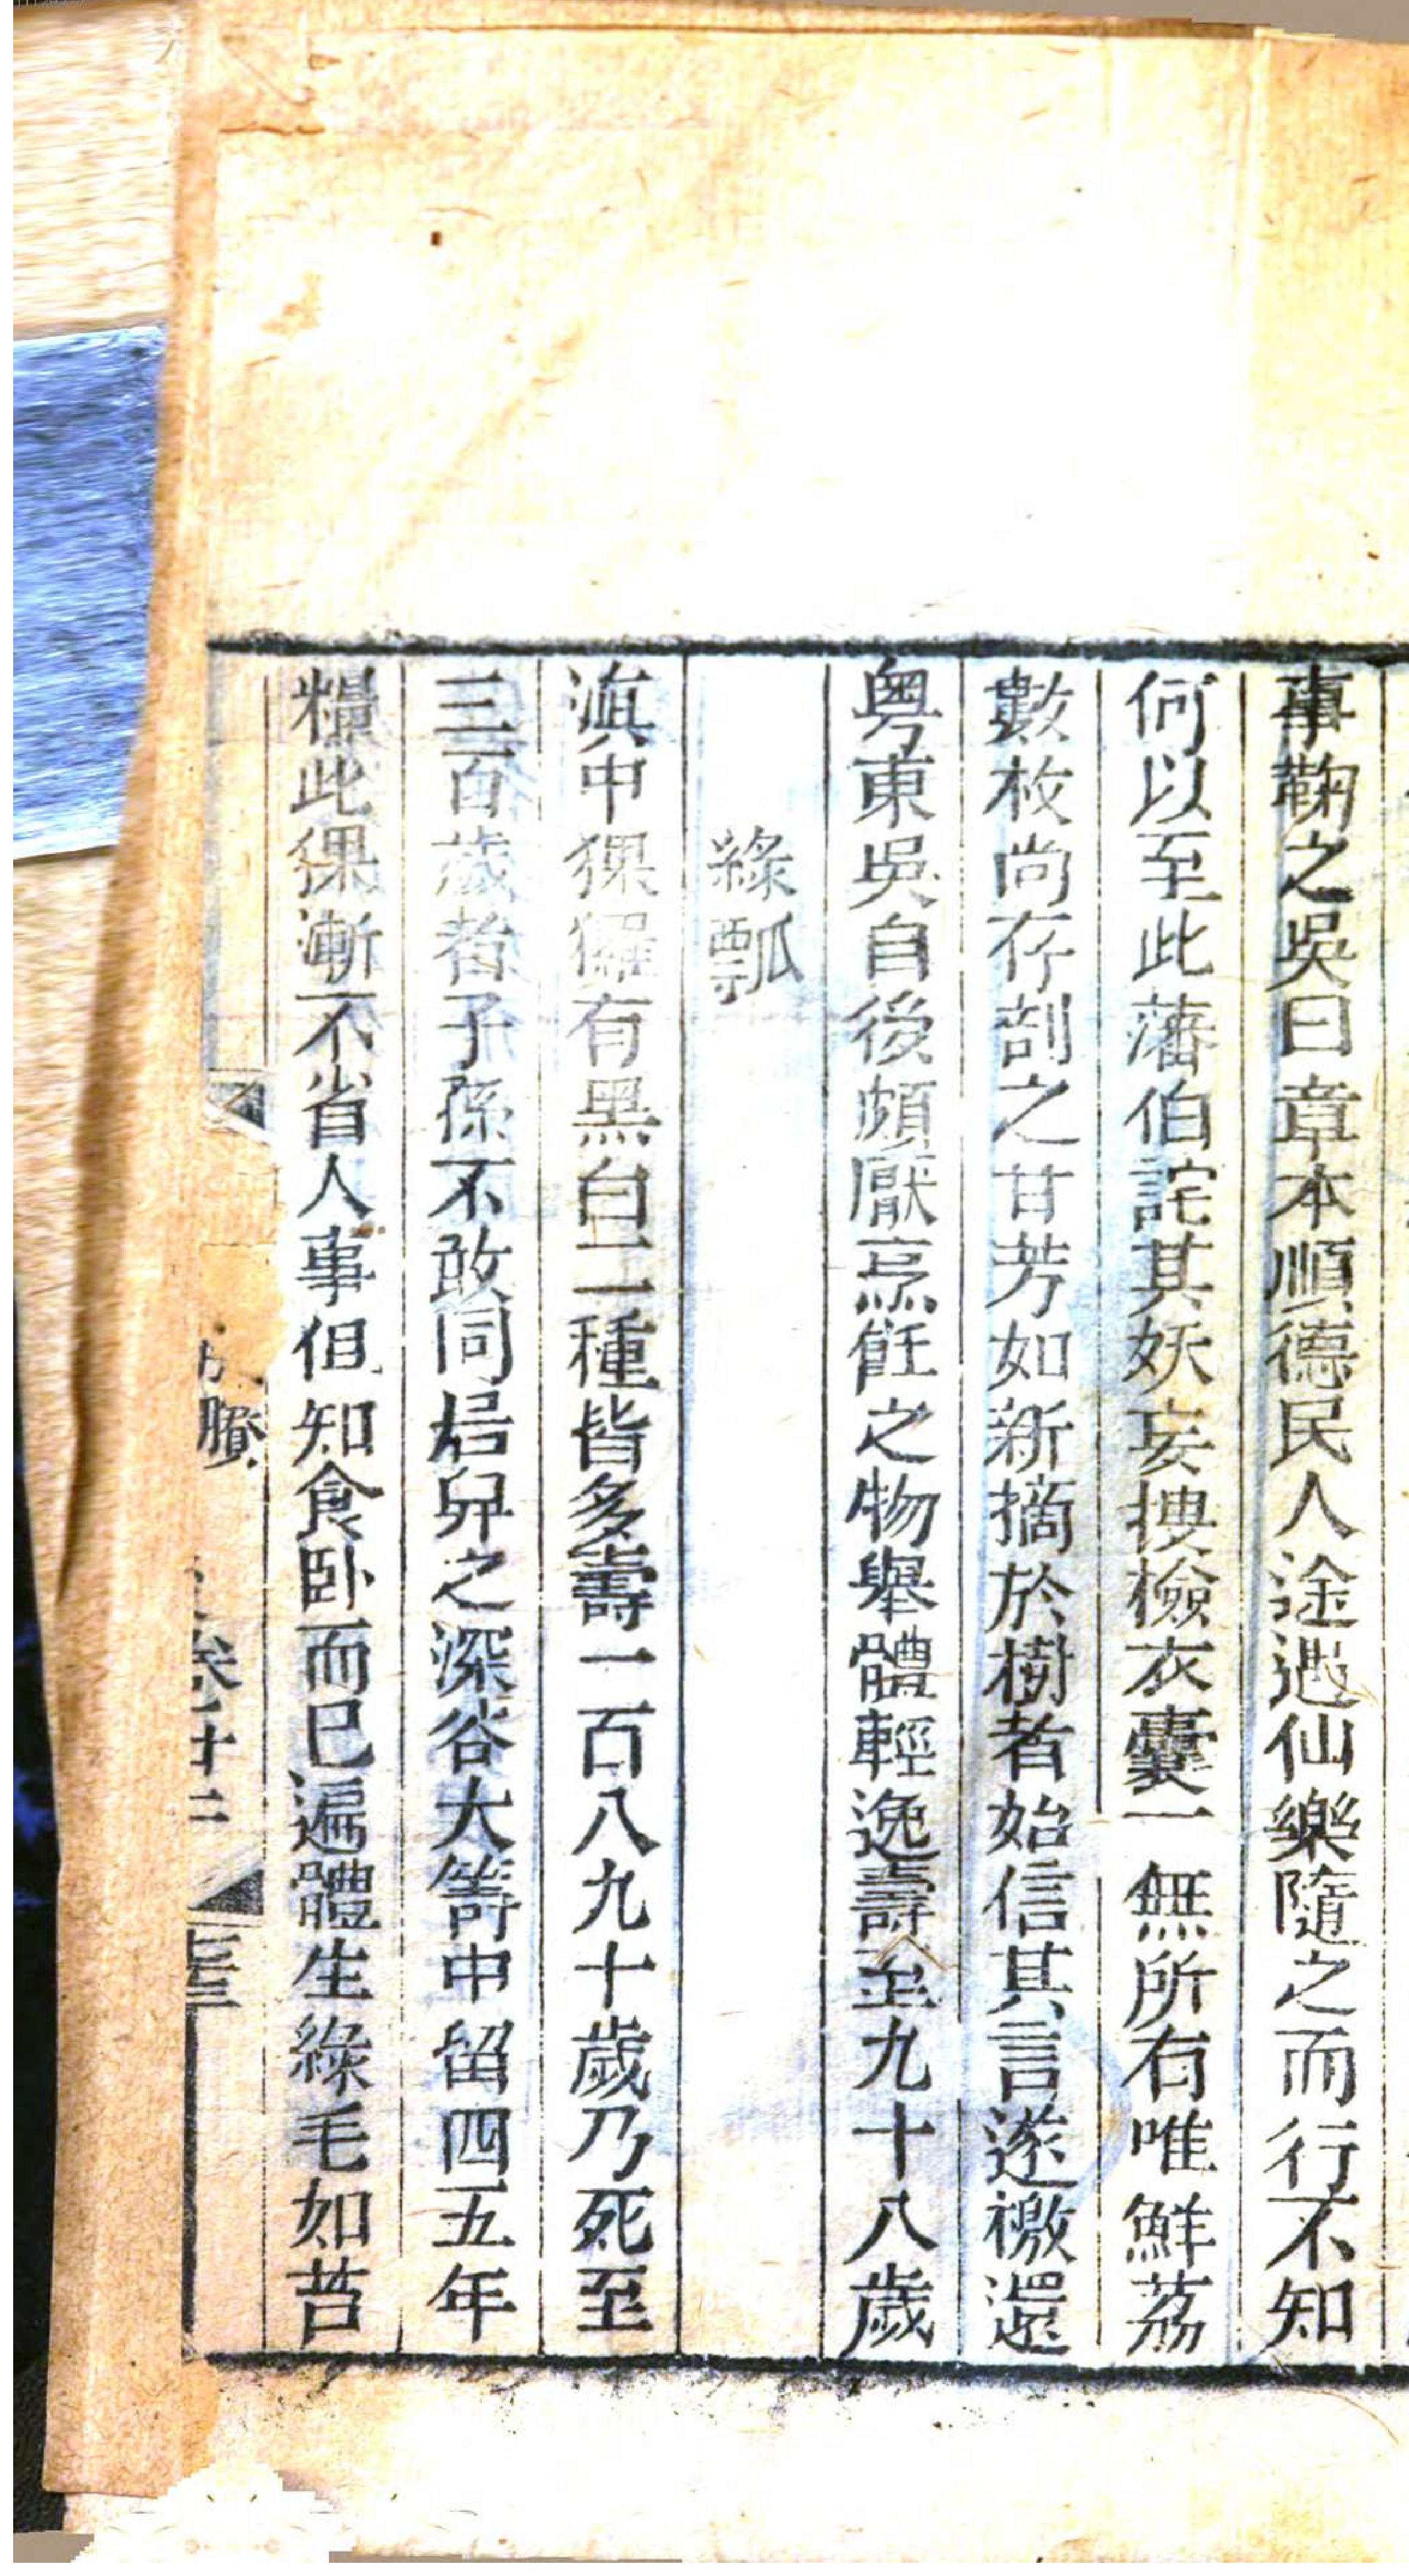 事鞫之吳曰章本順德民人途遇仙樂隨之而行不知
何以至此藩伯詫其妖妄搜檢衣囊一無所有唯鮮荔
數枚尚存剖之甘芳如新摘於樹者始信其言遂檄還
粤東吳自後頗厭烹飪之物舉體輕逸壽至九十八歲
綠瓢
滇中猓玀有黑白二種皆多壽一百八九十歲乃死至
三百歲者子孫不敢同居舁之深谷大箐中留四五年
糧此猓漸不省人事但知食卧而已遍體生綠毛如苔
賸
卷十二